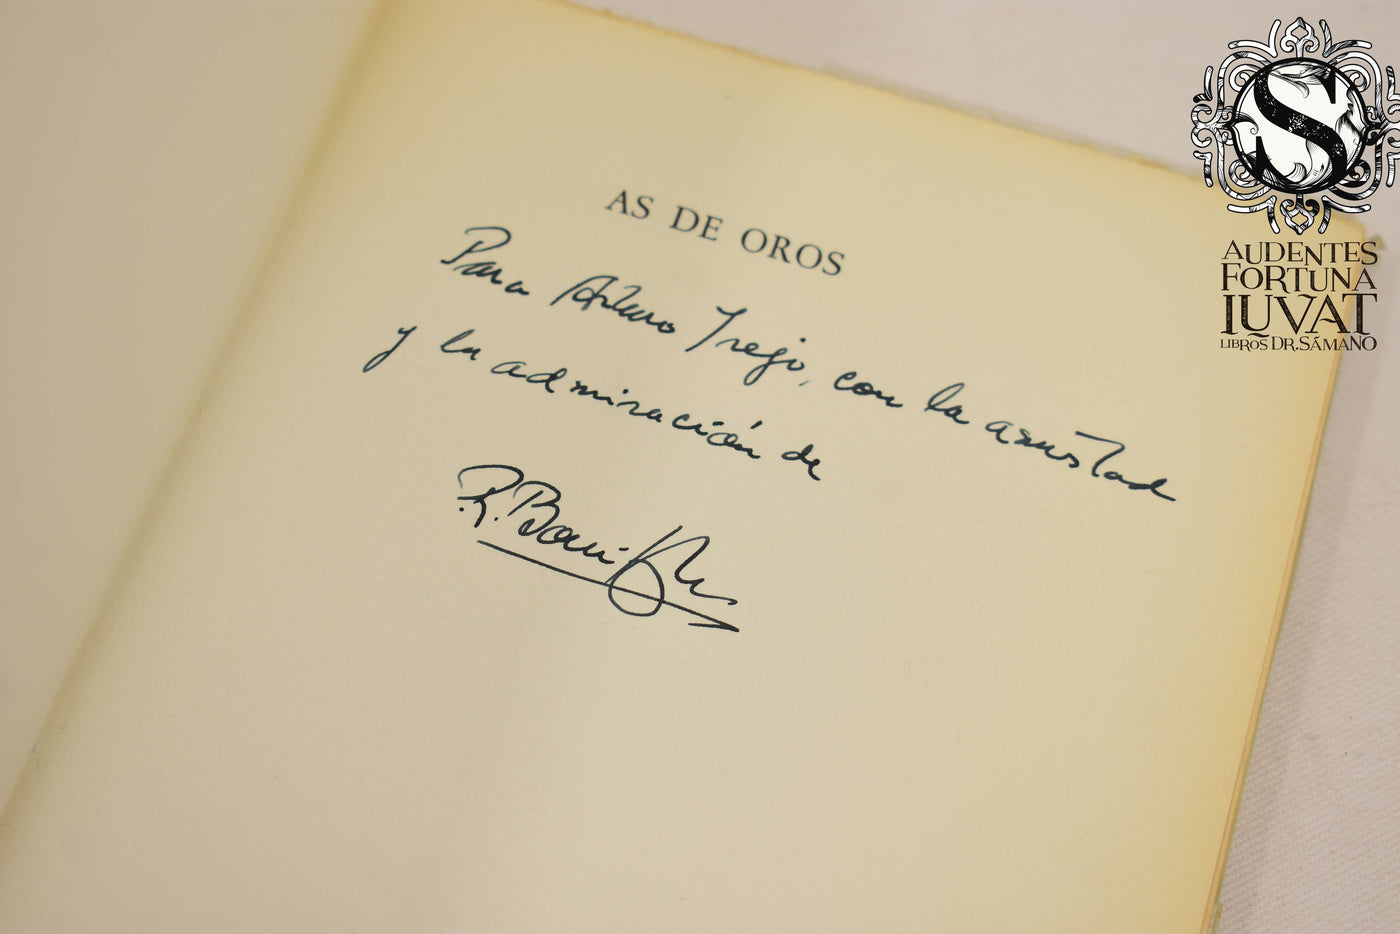 AS DE OROS
Para Arturo Trejo, con la amistad
y la admiración de
R. Bonifaz
S
AUDENTES
FORTUNA
IUVAT
LIBROS DR. SÁMANO